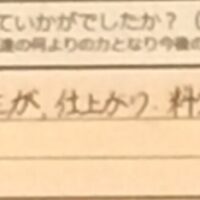 ていかがでしたか？（
達の何よりの力となり今後の
が、仕上がり、料